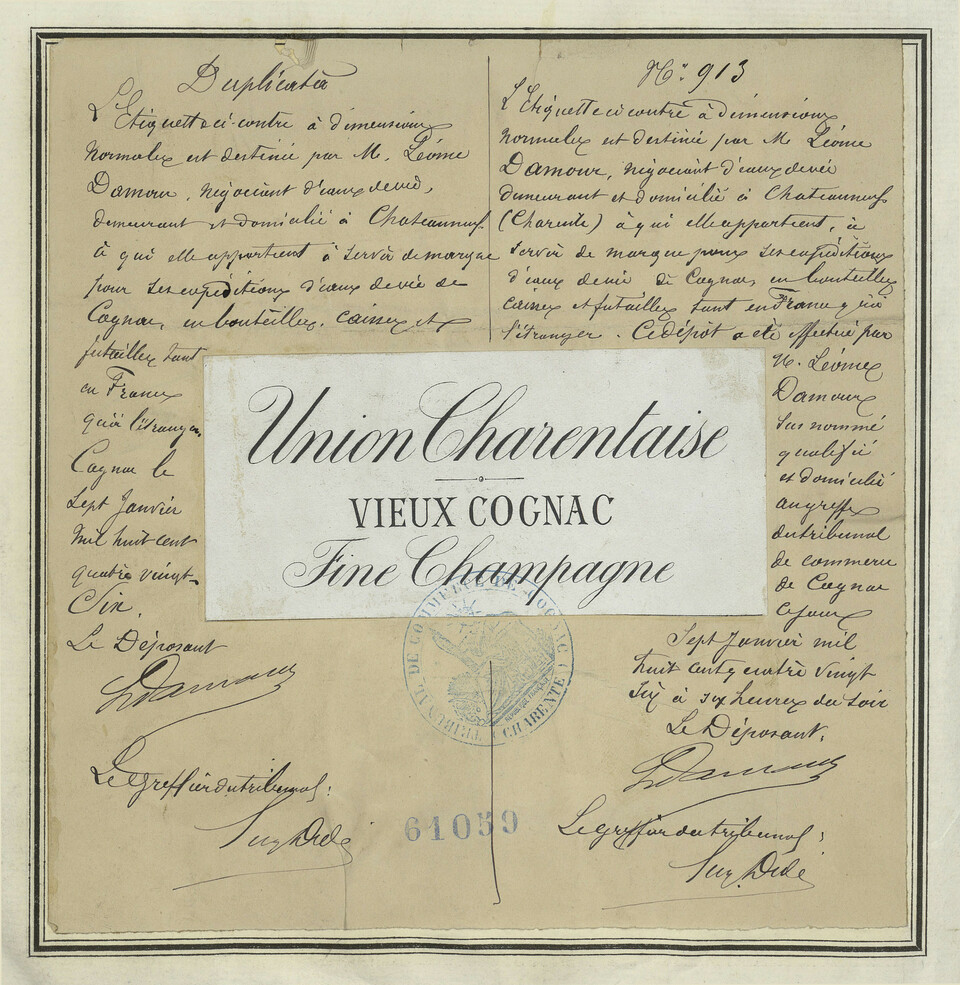 Duplicata
L'Etiquette ci-contre à dimensions
Normales est destinée par M. Léonce
Damour, négociant d'eaux de vie,
demeurant et domicilié à Chateauneuf
à qui elle appartient à servir de marque
pour ses expéditions d'eaux de vie de
Cognac, en bouteilles, caisses et
futailles tant
en France
qu'à l'étranger.
Cognac le
Sept Janvier
Mil huit cent
quatre vingt-
Six.
Le Déposant
LDamour
Le Greffier du tribunal:
N° 913
L'Etiquette ci-contre à dimensions
Normales est destinée par M. Léonce
Damour, négociant d'eaux de vie
demeurant et domicilié à Chateauneuf
(Charente) à qui elle appartient, à
servir de marque pour ses expéditions
d'eaux de vie de Cognac, en bouteilles
caisses et futailles tant en France qu'à
l'étranger. Ce dépôt a été effectué par
M. Léonce
Damour
sus nommé
qualifié
et domicilié
au greffe
du tribunal
de commerce
de Cognac
ce jour
Sept Janvier mil
huit cent quatre vingt
six à six heures du soir
Le Déposant.
LDamour
Le Greffier du tribunal:
Union Charentaise
VIEUX COGNAC
Fine Champagne
TRIBUNAL DE COMMERCE DE COGNAC
(CHARENTE)
REPUBLIQUE FRANÇAISE
61059